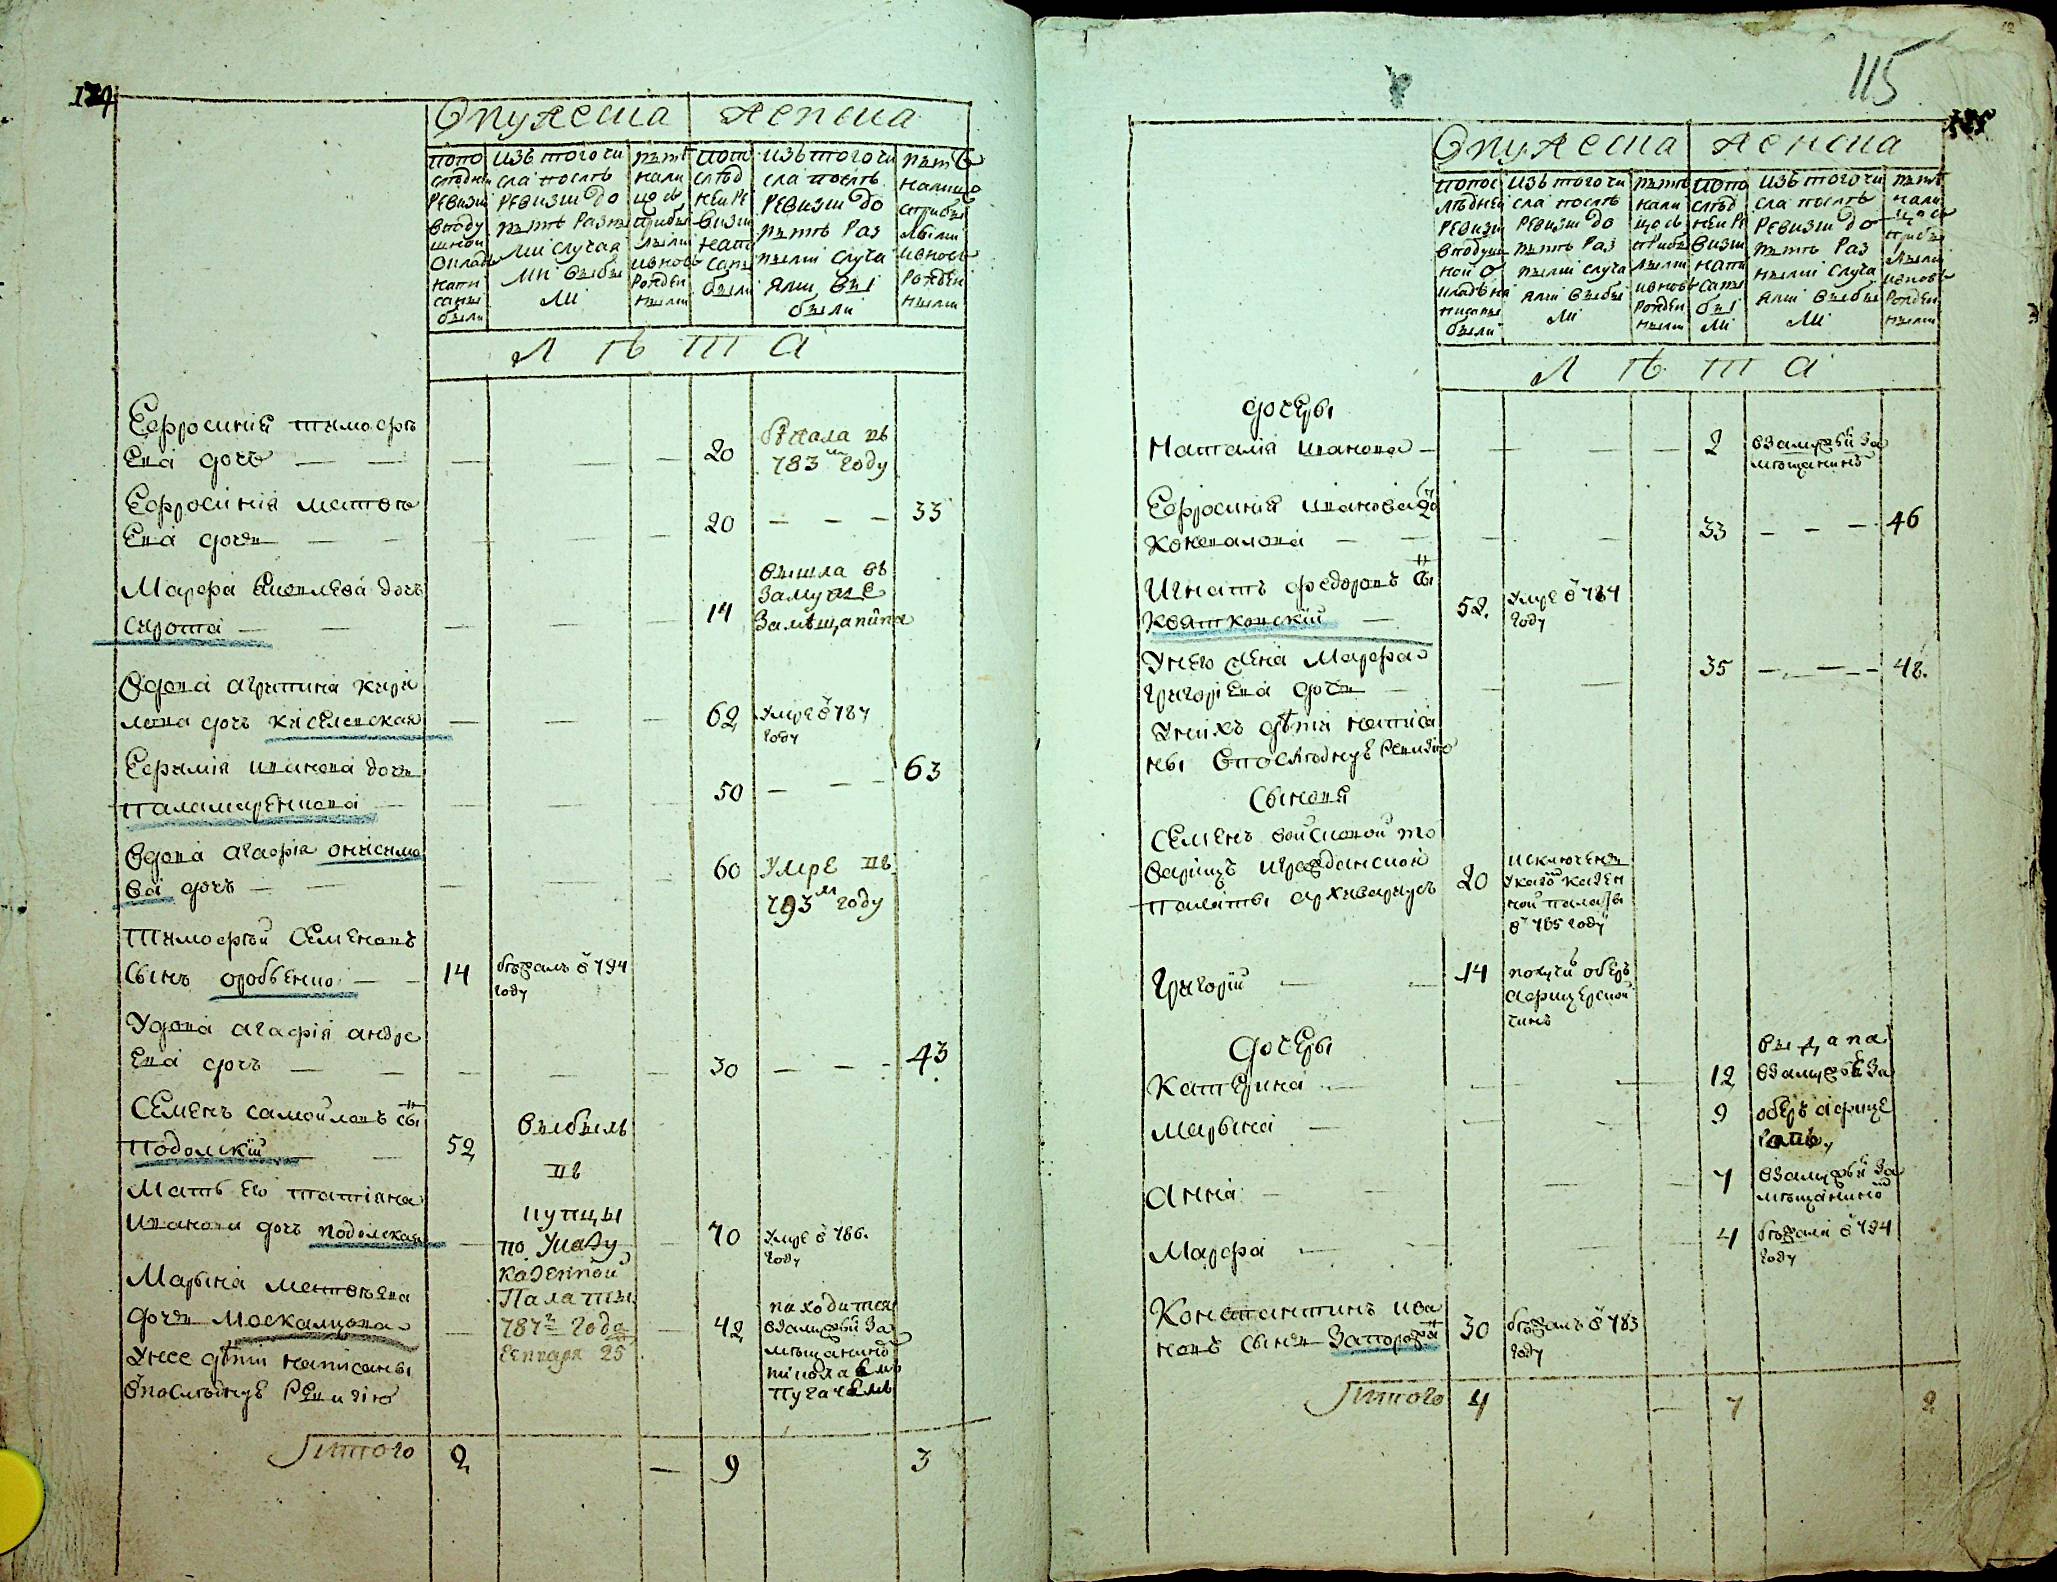 124
Мужеска
женска
попо
следней
ревизи
в поду
шной
оклад
напи
саны
были
изъ того чи
сла послѣ
ревизии до
нынѣ разны
ми случая
ми выбы
ли
нынѣ
нали
цо съ
прибы
лыми
и вновь
рожден
ными
попо
слѣд
ней ре
визии
напи
саны
были
изъ того чи
сла послѣ
ревизии до
нынѣ раз
ными случа
ями вы
были
нынѣ
налицо
с прибы
лыми
и вновь
рожден
ными
лѣта
Ефросиния тимофѣ
ева дочь — — — — — 20 бежала въ
783м году
Ефросиния матвѣ
ева дочь — — — — — 20 — — — 33
Марфа дочь
сирота — — — — 14 вышла въ
замуже
за мѣщанина
вдова агрипина кири
лова дочь киселевская — — — 62 умре в 787
году
Ефимия иванова дочь
паламаренкова — — — — 50 — — — 63
вдова агафия онисимо
ва дочь — — — — — 60 умре въ
793м году
тимофѣй Семеновъ
сынъ оробченко — — 14 бѣжалъ в 794
году
Удова агафия андре
ева дочь — — — — — 30 — — — 43
Семенъ самойловъ сынъ
подолский — — 52 выбылъ
въ
купцы
по указу
казенной
Палаты
787го года
генваря 25
Мать его татияна
иванова дочь подолская — — 70 умре в 786
году
Марина матвѣева
дочь Москальцова — — 42 находится
в замужествѣ за
мѣщанином
николаемъ
пугачемъ
У нее дѣти написаны
в последнюю ревизию
Итого 2 — 9 3
115
125
Мужеска
женска
попос
лѣдней
ревизи
в подуш
ной о
кладѣ на
писаны
были
изъ того чи
сла послѣ
ревизии до
нынѣ раз
ными случа
ями выбы
ли
нынѣ
нали
цо съ
прибы
лыми
и вновь
рожден
ными
попо
слѣд
ней ре
визии
напи
саны
бы
ли
изъ того чи
сла послѣ
ревизии до
нынѣ раз
ными случа
ями выбы
ли
нынѣ
нали
цо съ
прибы
лыми
и вновь
рожден
ными
лѣта
дочери
Наталия иванова — — — — — 2 в замужествѣ за
мѣщанинъ
Ефросиния иванова до
Коновалова — — — — 33 — — — 46
Игнатъ федоровъ сынъ
Квятковский — 52 умре в 784
году
У него жена Марфа
григориева дочь — — — 35 — — — 48
У нихъ дѣти написа
ны в последнюю ревизию
Сыновя
Семенъ войсковой то
варищъ гражданской
палаты архивариусъ 20 исключенъ
указом казен
ной палаты
в 785 году
Григорий — — 14 получил оберъ
офицерской
чинъ
дочери
Катерина — — — 12 выдана
в замужество за
Марина — — — 9 оберъ офице
ромъ
Анна — — — 7 в замужествѣ за
мѣщанином
Марфа — — — 4 бѣжала в 794
году
Константинъ ива
новъ сынъ Запорожа 30 бѣжалъ в 783
году
Итого 4 — 7 2